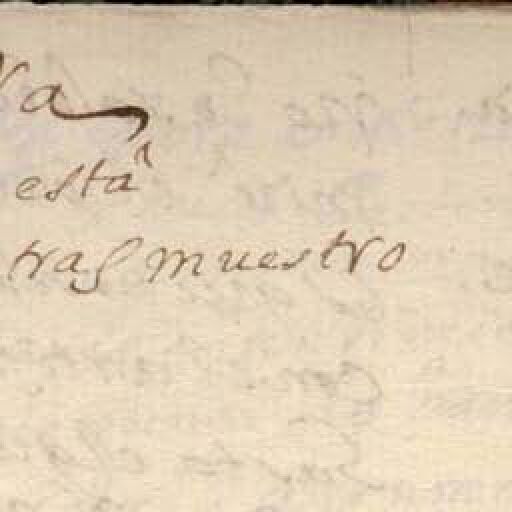 va
está
tras muestro